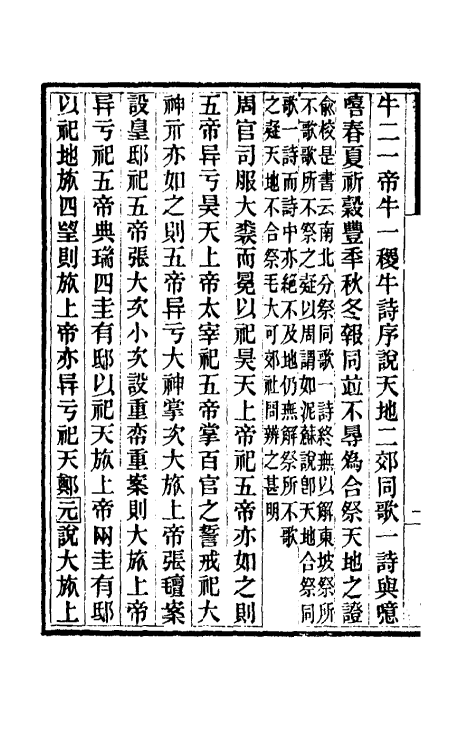 牛二一帝牛一稷牛詩序說天地二郊同歌一詩與噫
嘻春夏祈穀豐季秋冬報同竝不㝷爲合祭天地之證
兪校是書云南北分祭同歌一詩終無以解東坡祭所
不歌歌所不祭之疑以周謂如泥蘇說卽天地合祭同
歌一詩而詩中亦絕不及地仍無解祭所不歌
之疑天地不合祭毛大可郊社問辨之甚明
周官司服大裘而冕以祀昊天上帝祀五帝亦如之則
五帝异亏昊天上帝太宰祀五帝掌百官之誓戒祀大
神亓亦如之則五帝异亏大神掌次大旅上帝張氊案
設皇邸祀五帝張大次小次設重帟重案則大旅上帝
异亏祀五帝典瑞四圭有邸以祀天旅上帝兩圭有邸
以祀地旅四望則旅上帝亦异亏祀天鄭元說大旅上